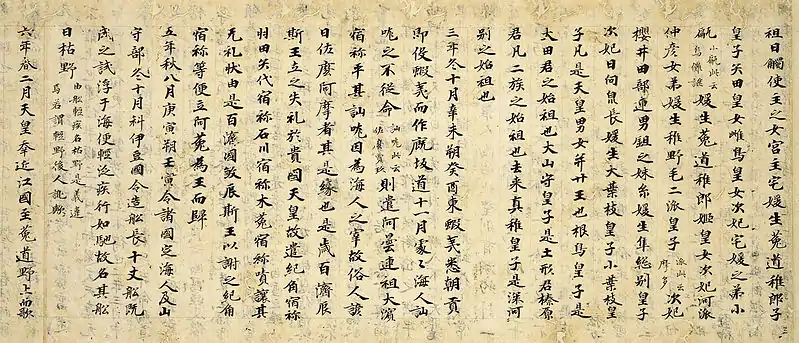 祖日觸使主之女宮主宅媛生菟道稚郎子
皇子矢田皇女雌鳥皇女次妃宅媛之弟小
甂小甂此云烏儺謎媛生菟道稚郎姬皇女次妃河派
仲彥女弟媛生稚野毛二派皇子派此云摩多次妃
櫻井田部連男鉏之妹糸媛生隼總別皇子
次妃日向泉長媛生大葉枝皇子小葉枝皇
子凡是天皇男女幷廿王也根鳥皇子是
大田君之始祖也大山守皇子是土形君榛原
君凡二族之始祖也去來真稚皇子是深河
別之始祖也
三年冬十月辛未朔癸酉東蝦夷悉朝貢
即役蝦夷而作厩坂道十一月處々海人訕
哤之不從命訕哤此云則遣阿曇連祖大濱
宿祢平其訕哤因為海人之宰故俗人諺
曰佐麼阿摩者其是緣也是歲百濟辰
斯王立之失礼於貴國天皇故遣紀角宿祢
羽田矢代宿祢石川宿祢木菟宿祢嘖讓其
无礼狀由是百濟國敦辰斯王以謝之紀角
宿祢等便立阿菀為王而歸
五年秋八月庚寅朔壬寅令諸國定海人及山
守部冬十月科伊豆國令造船長十丈船既
成之試浮于海便輕泛疾行如馳故名其船
曰枯野由船輕疾名枯野是義違焉若謂輕野後人訛歟
六年春二月天皇幸近江國至菟道野上而歌